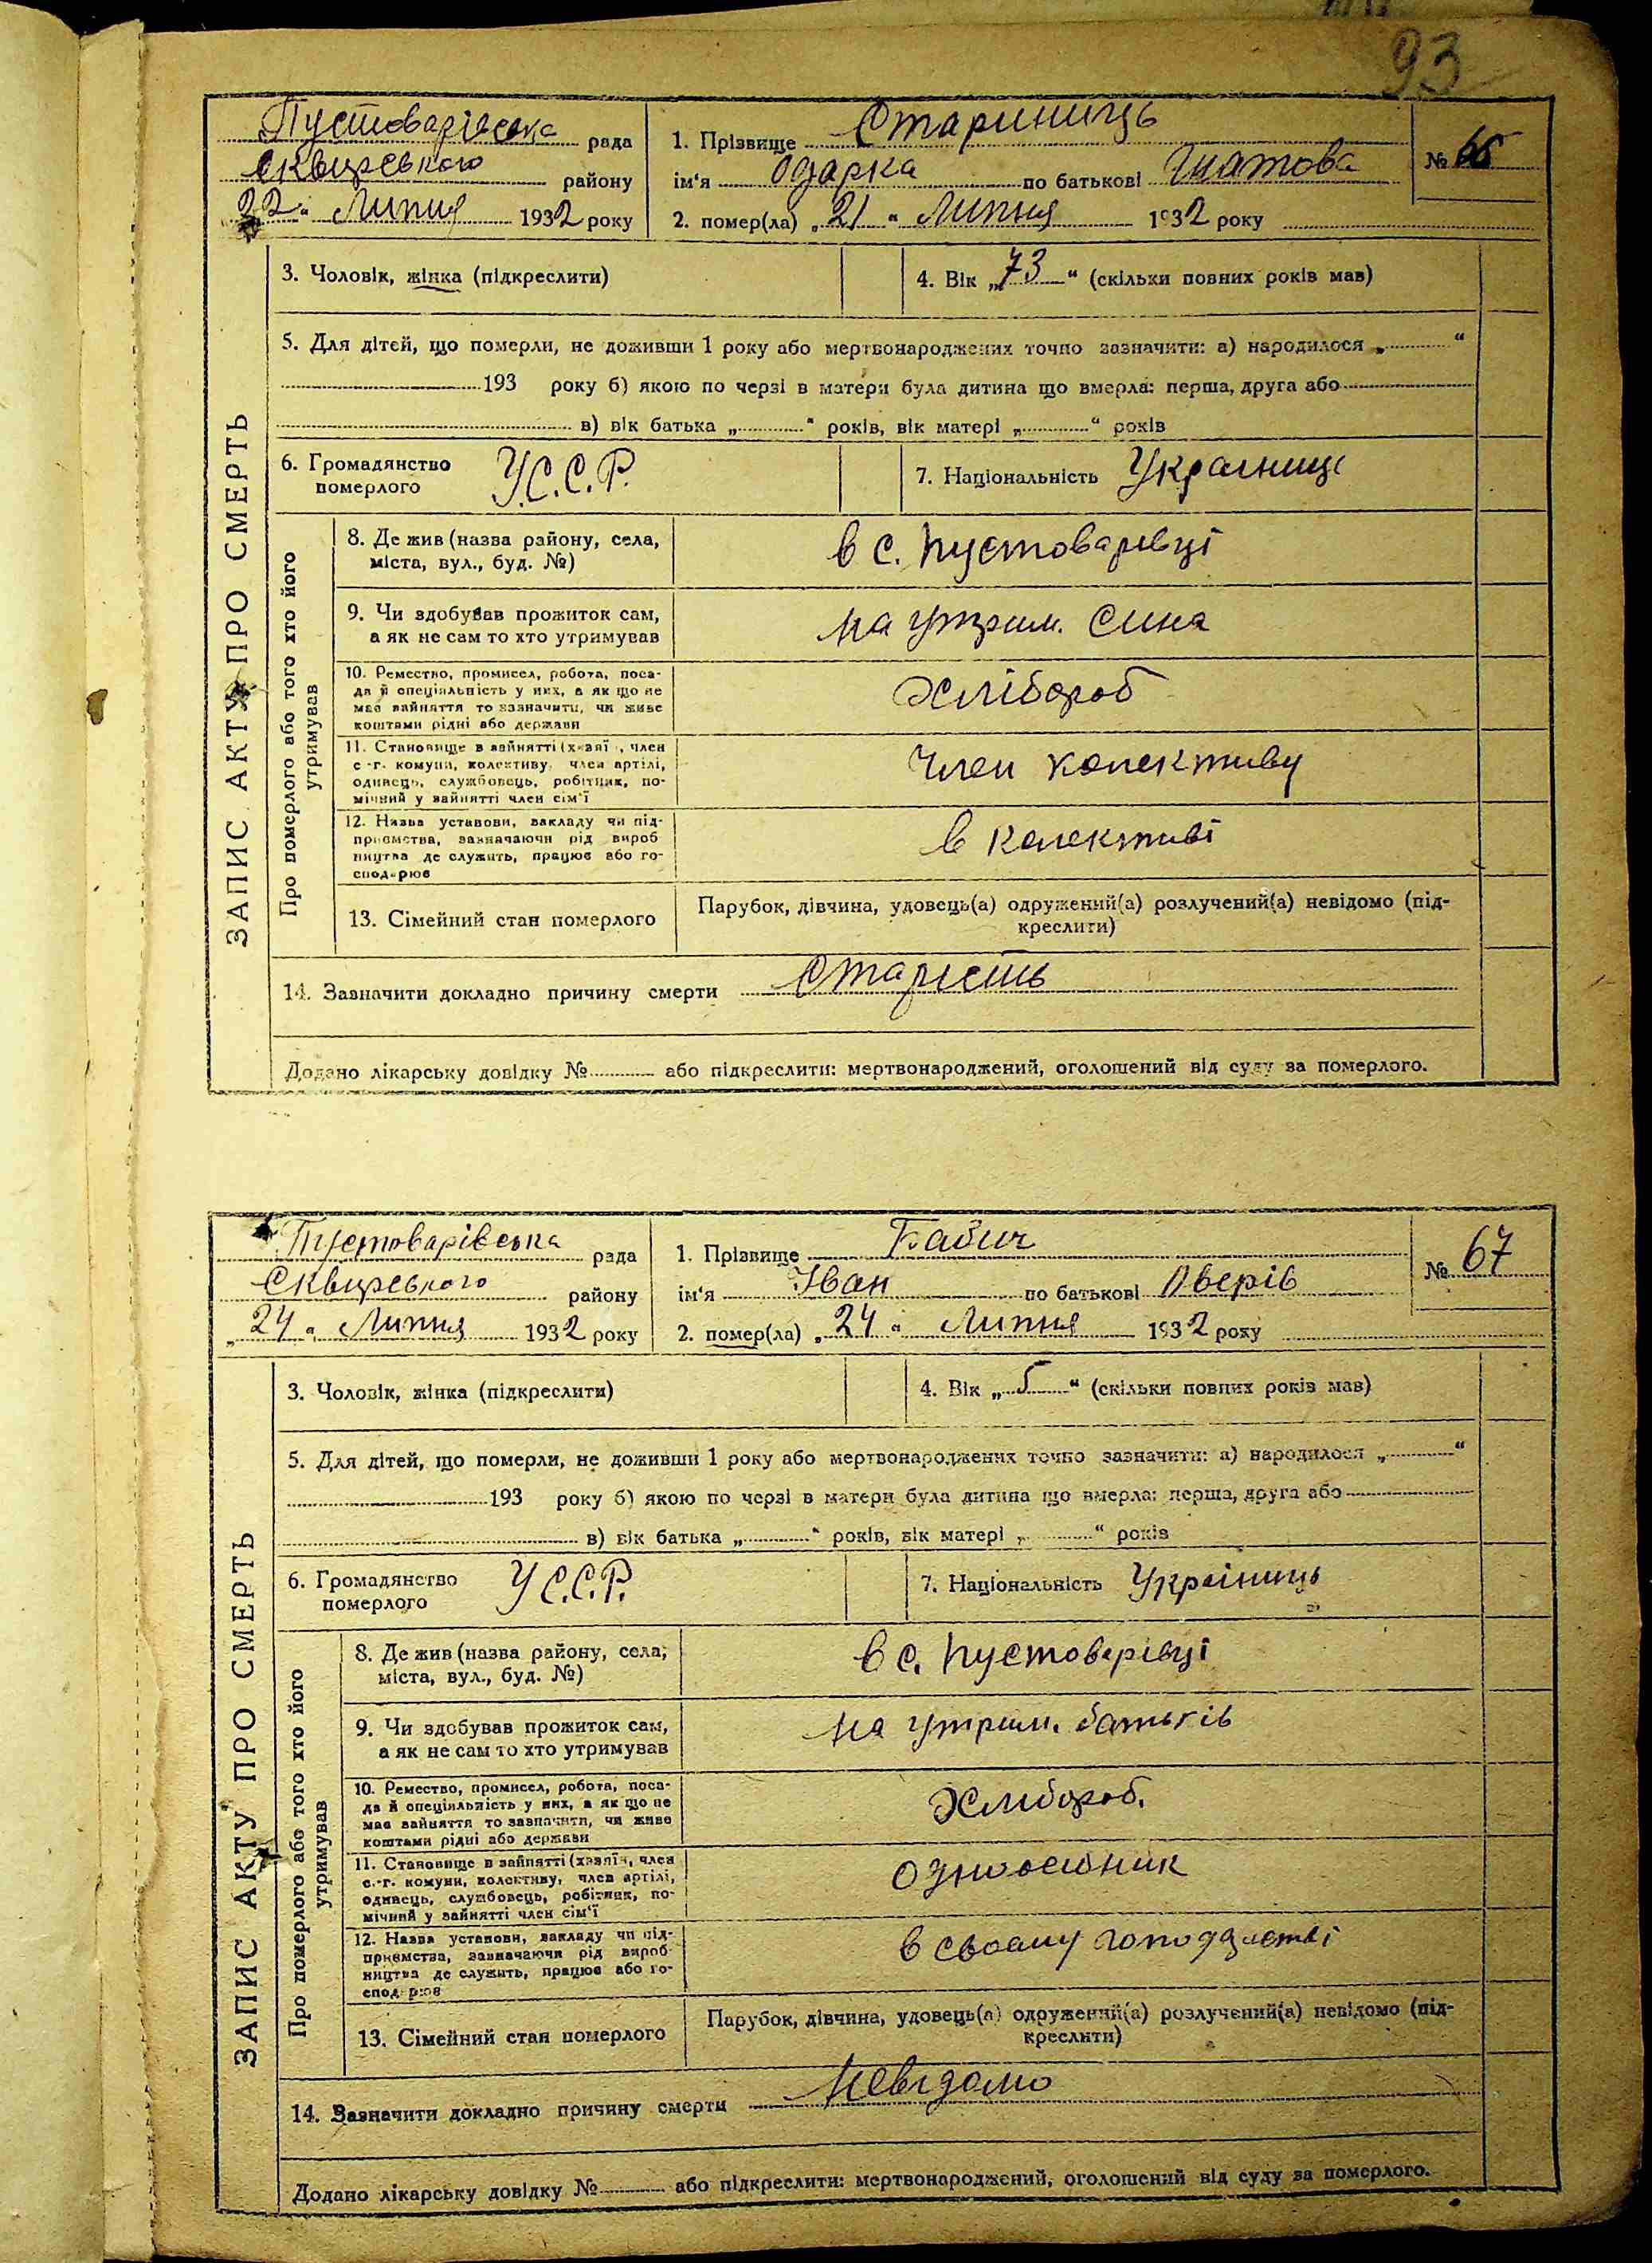 93
Пустоварівська рада
Сквирського району
22 " Липня 1932 року
1. Прізвище Стариниць
ім'я Одарка по батькові Гнатова
№ 66
2. помер(ла) „ 21 " Липня 1932 року
ЗАПИС АКТУ ПРО СМЕРТЬ
3. Чоловік, жінка (підкреслити)
4. Вік „ 73 " (скільки повних років мав)
5. Для дітей, що померли, не доживши 1 року або мертвонароджених точно зазначити: а) народилося „ "
193 року б) якою по черзі в матери була дитина що вмерла: перша, друга або
в) вік батька „ " років, вік матері „ " років
6. Громадянство
померлого
У.С.С.Р.
7. Національність Українець
Про померлого або того хто його
утримував
8. Де жив (назва району, села,
міста, вул., буд. №)
в с. Пустоварівці
9. Чи здобував прожиток сам,
а як не сам то хто утримував
на утрим. сина
10. Ремество, промисел, робота, поса-
да й спеціяльність у них, а як що не
має зайняття то зазначити, чи живе
коштами рідні або держави
Хлібороб
11. Становище в зайнятті (хазяї , член
с.-г. комуни, колективу, член артілі,
одинець, службовець, робітник, по-
мічний у зайнятті член сім'ї
Член колективу
12. Назва установи, закладу чи під-
приємства, зазначаючи рід вироб
ництва де служить, працює або го-
сподарює
в колективі
13. Сімейний стан померлого
Парубок, дівчина, удовець(а) одружений(а) розлучений(а) невідомо (під-
креслити)
14. Зазначити докладно причину смерти Старість
Додано лікарську довідку № або підкреслити: мертвонароджений, оголошений від суду за померлого.
Пустоварівська рада
Сквирського району
„ 24 " Липня 1932 року
1. Прізвище Бабич
ім'я Іван по батькові Оверів
№ 67
2. помер(ла) „ 24 " Липня 1932 року
ЗАПИС АКТУ ПРО СМЕРТЬ
3. Чоловік, жінка (підкреслити)
4. Вік „ 5 " (скільки повних років мав)
5. Для дітей, що померли, не доживши 1 року або мертвонароджених точно зазначити: а) народилося „ "
193 року б) якою по черзі в матери була дитина що вмерла: перша, друга або
в) вік батька „ " років, вік матері „ " років
6. Громадянство
померлого
У С.С.Р.
7. Національність Українець
Про померлого або того хто його
утримував
8. Де жив (назва району, села,
міста, вул., буд. №)
в с. Пустоварівці
9. Чи здобував прожиток сам,
а як не сам то хто утримував
на утрим. батьків
10. Ремество, промисел, робота, поса-
да й спеціяльність у них, а як що не
має зайняття то зазначити, чи живе
коштами рідні або держави
Хлібороб.
11. Становище в зайнятті (хазяїн, член
с.-г. комуни, колективу, член артілі,
одинець, службовець, робітник, по-
мічний у зайнятті член сім'ї
Одноосібник
12. Назва установи, закладу чи під-
приємства, зазначаючи рід вироб
ництва де служить, працює або го-
сподарює
в своєму господарстві
13. Сімейний стан померлого
Парубок, дівчина, удовець(а) одружений(а) розлучений(а) невідомо (під-
креслити)
14. Зазначити докладно причину смерти Невідомо
Додано лікарську довідку № або підкреслити: мертвонароджений, оголошений від суду за померлого.